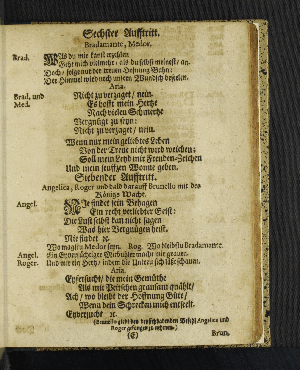 Sechster Aufftritt.
Bradamante, Medor.
Brad. Was du mir kanst erzehlen
Geht mich vielmehr / als du selbst meinest / an.
Doch / folgt nur der treuen Hoffnung Bahn;
Der Himmel wird nach unsern Wunsch bezielen.
Aria.
Brad. und Nicht zu verzaget / nein.
Med. Es hofft mein Hertze
Nach vielen Schmertze
Vergnügt zu seyn:
Nicht zu verzaget / nein.
Wenn nur mein geliebtes Leben
Von der Treue nicht wird weichen;
Soll mein Leyd mit Freuden-Zeichen
Und mein seuffzen Wonne geben.
Siebender Aufftritt.
Angelica, Roger und bald darauff Brunello mit des
Königs Wacht.
Angel. Nie findet sein Behagen
Ein recht verliebter Geist:
Die Lust selbst kan nicht sagen
Was hier Vergnügen heist.
Nie findet ꝛc.
Wo mag itzt Medor seyn. Rog. Wo bleibst du Bradamante.
Angel. Ein Eyversüchtiger
Roger. Und mir ein Hertz /
Aria.
Eyfersucht / die mein Gemüthe
Als mit Peitschen grausam quählt /
Ach / wo bleibt der Hoffnung Güte /
Wenn dein Schrecken mich entseelt.
Eyversucht ꝛc.
Angelica und
Roger gefangen zu nehmen.)
(E) Brun.